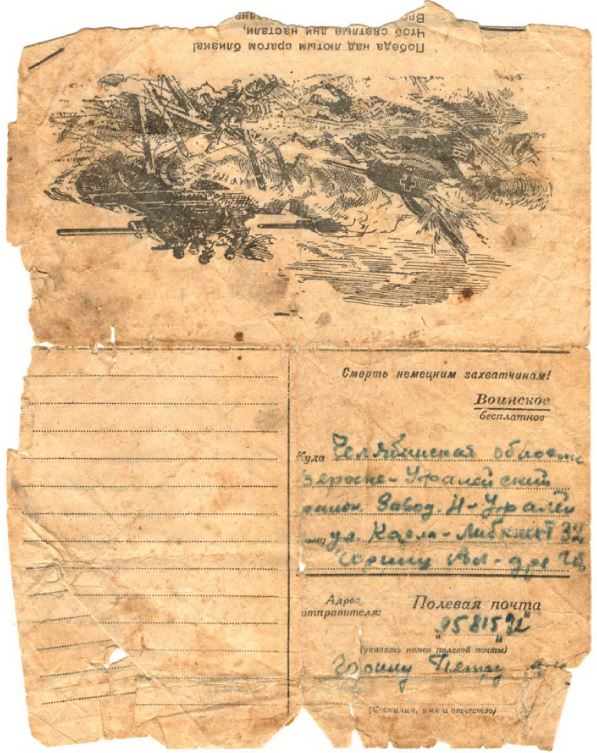 Победа над лютым врагом близка!
Чтоб светлые дни настали,
Смерть немецким захватчинам!
Воинское
бесплатное
Куда Челябинская область
верхне-Уфалейский
район. Завод. Н-Уфалей
ул. Карла-Либкнехт 32
Горину Ал-др
Адрес отправителя:
Полевая почта
(указать номер полевой почты)
Горину Петру
(Фамилия, имя и отчество)